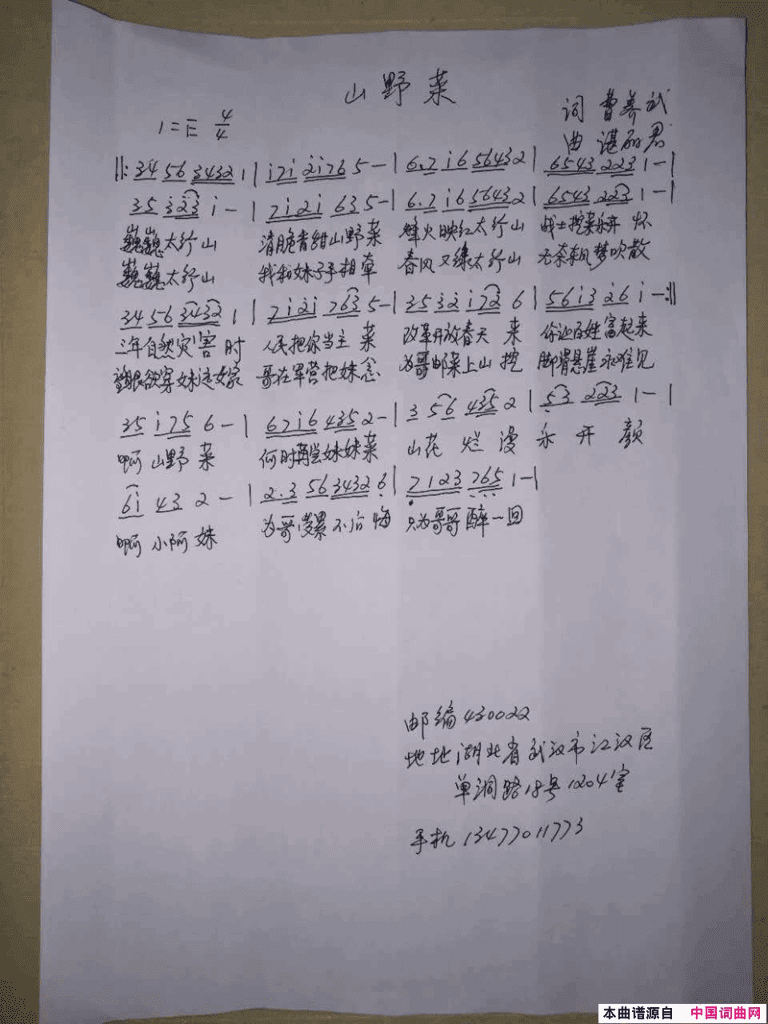 山野菜
1=E 4/4
词 曹养武
曲 谌丽君
‖: 34 56 3432 1 | i7i 2i76 5 - | 6.7 i6 56432 | 6543 223 1 - |
35 323 i - | 7i2i 635 5 - | 6.7 i6 56432 | 6543 223 1 - |
巍巍太行山 清脆香甜山野菜 烽火映红太行山 战士挖菜乐开怀
巍巍太行山 我和妹子手相牵 春风又绿太行山 无奈东风梦吹散
34 56 3432 1 | 7i2i 763 5 - | 35 32 i72 6 | 56i3 26 i - :‖
三年自然灾害时 人民把你当主菜 改革开放春天来 你让百姓富起来
望眼欲穿妹远嫁 哥在军营把妹念 为哥邮菜上山挖 脚滑悬崖永难见
35 i75 6 - | 67i6 435 2 - | 3 56 435 2 | 53 223 1 - |
啊 山野菜 何时再尝妹妹菜 山花烂漫永开颜
6i 43 2 - | 2.3 56 3432 6 | 7123 765 1 - |
啊 小阿妹 为哥受累不后悔 只为哥哥醉一回
邮编430022
地址湖北省武汉市江汉区
单洞路18号1204室
手机13477011773
本曲谱源自 中国词曲网